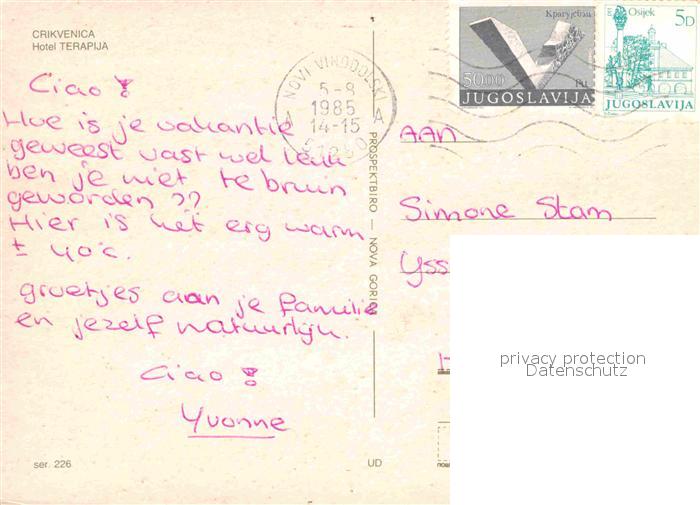 CRIKVENICA
Hotel TERAPIJA
Ciao !
Hoe is je vakantie
geweest vast wel leuk
ben je niet te bruin
geworden ??
Hier is het erg warm
± 40°c.
groetjes aan je familie
en jezelf natuurlijk.
Ciao !
Yvonne
ser. 226
UD
PROSPEKTBIRO — NOVA GORICA
NOVI VINODOLSKI
5-8
1985
14-15
A A
Крагујевац
50.00
JUGOSLAVIJA
Osijek
5D
JUGOSLAVIJA
AAN
Simone Stam
Yss
privacy protection
Datenschutz